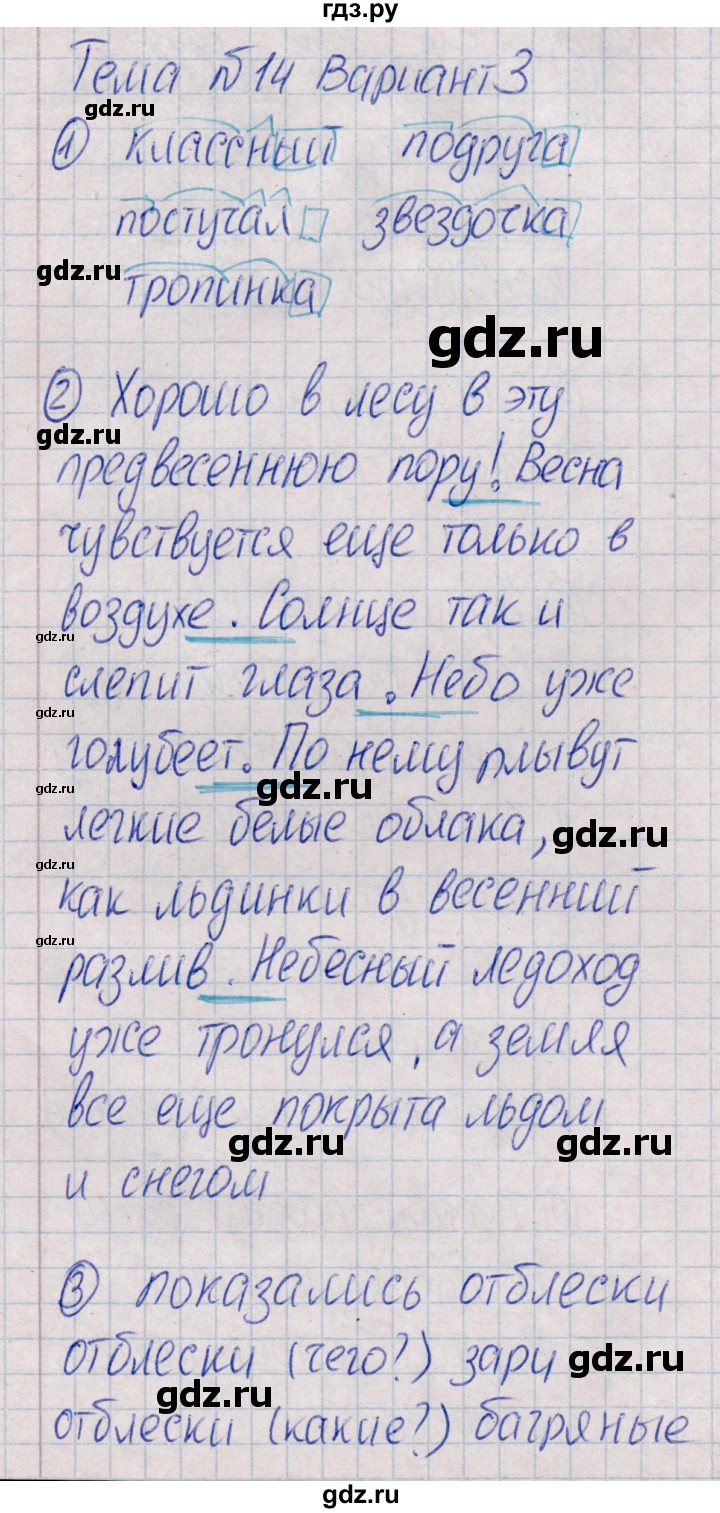 гдз.ру
Тема №14 Вариант 3
gdz.ru
1) классный подруга
постучал звездочка
gdz.ru
тропинка
gdz.ru
2) Хорошо в лесу в эту
gdz.ru
предвесеннюю пору! Весна
чувствуется еще только в
воздухе. Солнце так и
gdz.ru
слепит глаза. Небо уже
gdz.ru
голубеет. По нему плывут
gdz.ru
gdz.ru
легкие белые облака,
gdz.ru
gdz.ru
как льдинки в весенний
gdz.ru
разлив. Небесный ледоход
уже тронулся, а земля
все еще покрыта льдом
gdz.ru
gdz.ru
и снегом
3) показались отблески
отблески (чего?) зари
gdz.ru
gdz.ru
отблески (какие?) багряные
gdz.ru